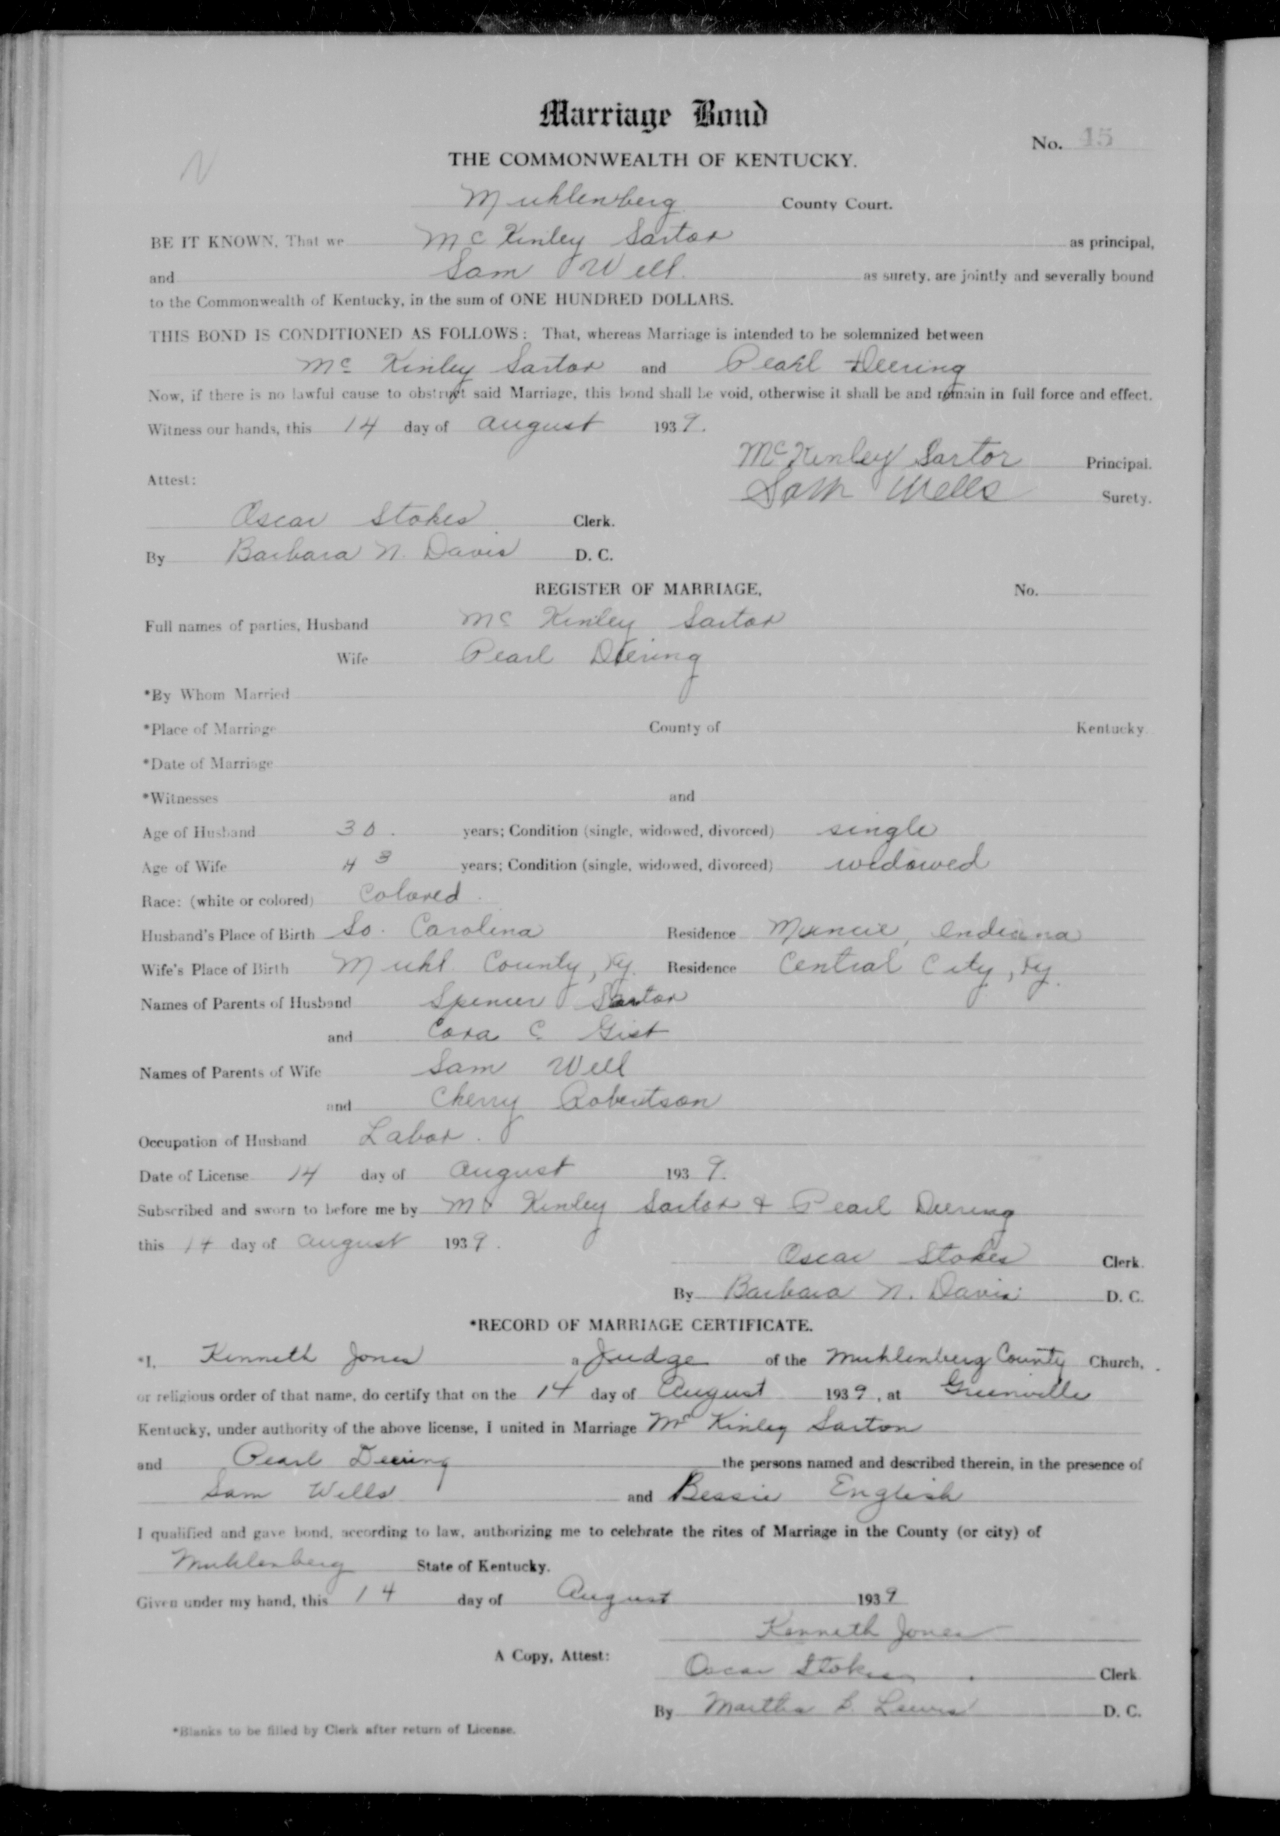 N
Marriage Bond
No. 15
THE COMMONWEALTH OF KENTUCKY.
Muhlenberg County Court.
BE IT KNOWN, That we McKinley Sartor as principal,
and Sam Well as surety, are jointly and severally bound
to the Commonwealth of Kentucky, in the sum of ONE HUNDRED DOLLARS.
THIS BOND IS CONDITIONED AS FOLLOWS: That, whereas Marriage is intended to be solemnized between
McKinley Sartor and Pearl Deering
Now, if there is no lawful cause to obstruct said Marriage, this bond shall be void, otherwise it shall be and remain in full force and effect.
Witness our hands, this 14 day of August 1939.
McKinley Sartor Principal.
Attest:
Sam Wells Surety.
Oscar Stokes Clerk.
By Barbara N. Davis D. C.
REGISTER OF MARRIAGE, No.
Full names of parties, Husband McKinley Sartor
Wife Pearl Deering
*By Whom Married
*Place of Marriage County of Kentucky.
*Date of Marriage
*Witnesses and
Age of Husband 30. years; Condition (single, widowed, divorced) single
Age of Wife 43 years; Condition (single, widowed, divorced) widowed
Race: (white or colored) Colored.
Husband's Place of Birth So. Carolina Residence Muncie, Indiana
Wife's Place of Birth Muhl. County, Ky. Residence Central City, Ky.
Names of Parents of Husband Spencer Sartor
and Cora C. Gist
Names of Parents of Wife Sam Well
and Cherry Robertson
Occupation of Husband Labor.
Date of License 14 day of August 1939.
Subscribed and sworn to before me by McKinley Sartor & Pearl Deering
this 14 day of August 1939.
Oscar Stokes Clerk.
By Barbara N. Davis D. C.
*RECORD OF MARRIAGE CERTIFICATE.
*I, Kenneth Jones a Judge of the Muhlenberg County Church,
or religious order of that name, do certify that on the 14 day of August 1939, at Greenville
Kentucky, under authority of the above license, I united in Marriage McKinley Sarton
and Pearl Deering the persons named and described therein, in the presence of
Sam Wells and Bessie English
I qualified and gave bond, according to law, authorizing me to celebrate the rites of Marriage in the County (or city) of
Muhlenberg State of Kentucky.
Given under my hand, this 14 day of August 1939
Kenneth Jones
A Copy, Attest:
Oscar Stokes Clerk
By Martha B. Lewis D. C.
*Blanks to be filled by Clerk after return of License.